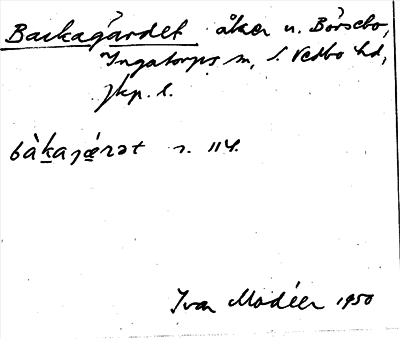 Backagärdet åker u. Börsebo,
Ingatorps sn, S. Vedbo hd,
Jkp. l.
bàkajæ̀rət s. 114.
Ivar Modéer 1950